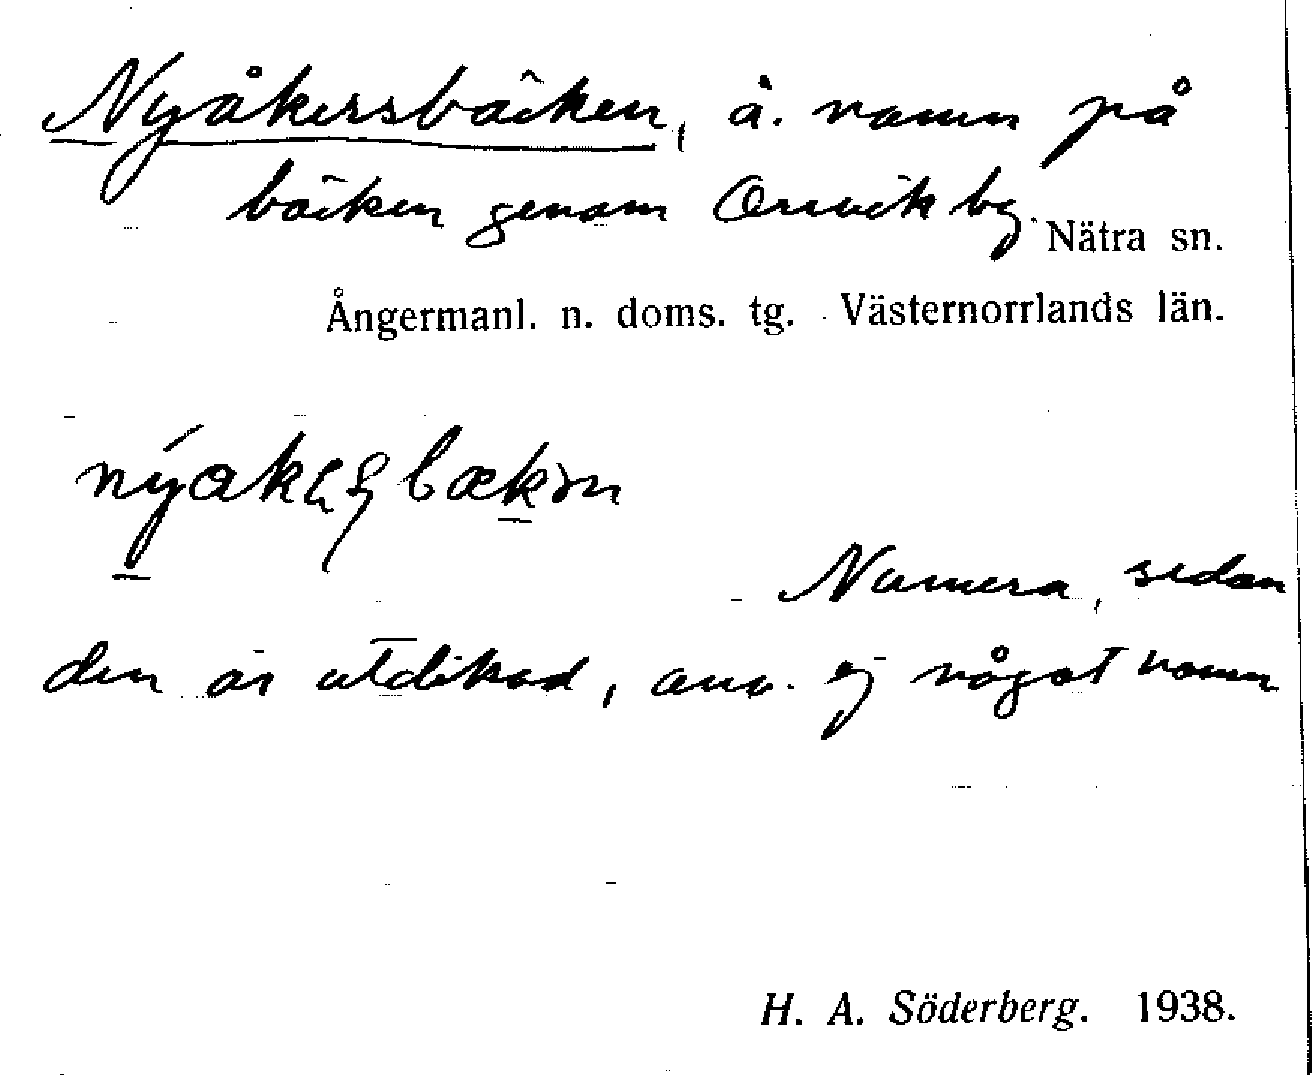 Nyåkersbäcken, ä. namn på
bäcken genom Örnvik by.
Nätra sn.
Ångermanl. n. doms. tg. Västernorrlands län.
Numera, sedan
den är utdikad, anv. ej något namn
H. A. Söderberg. 1938.